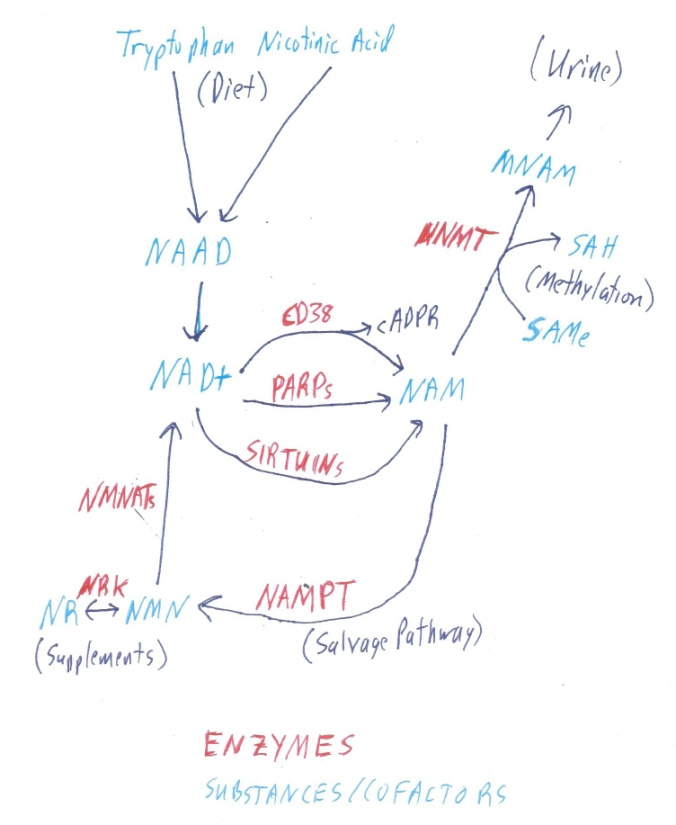 Tryptophan Nicotinic Acid
(Diet)
(Urine)
MNAM
NNMT
SAH
(Methylation)
SAMe
NAAD
CD38
cADPR
NAD+
PARPs
NAM
SIRTUINs
NMNATs
NRK
NR NMN
NAMPT
(Supplements)
(Salvage Pathway)
ENZYMES
SUBSTANCES/COFACTORS